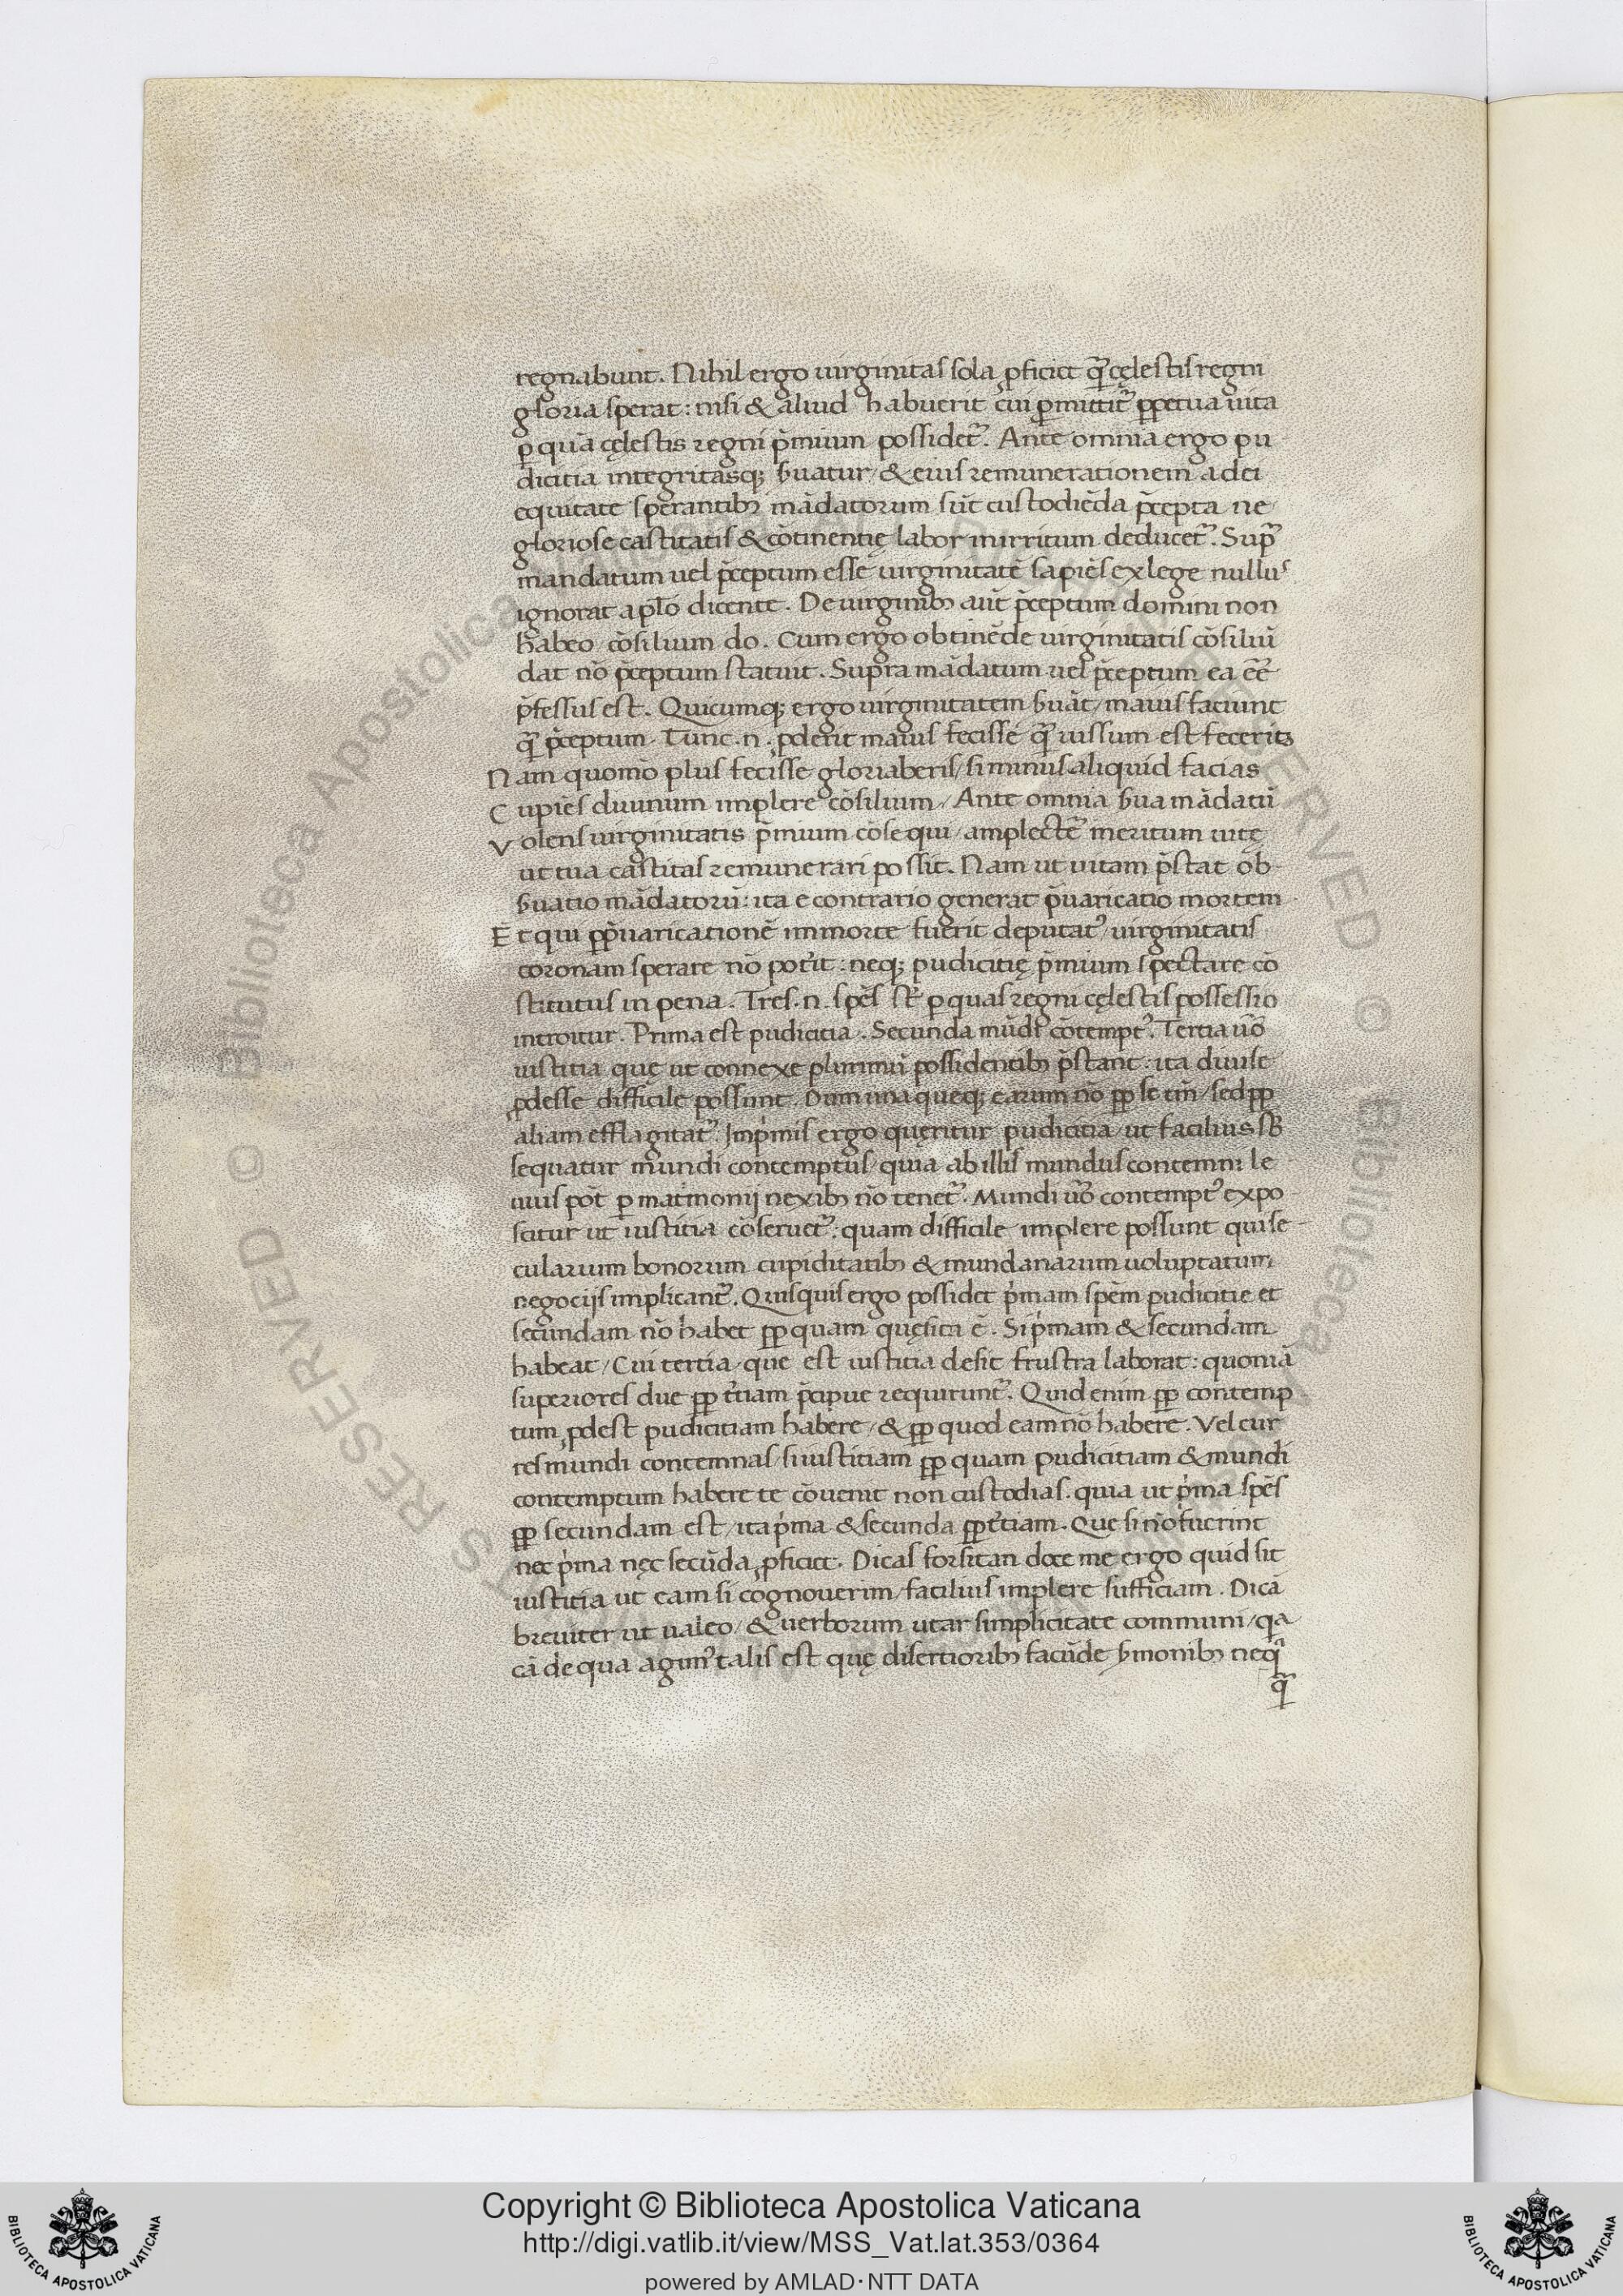 regnabunt. Nihil ergo uirginitas sola ꝓficiet q̃ cęlestis regni
gloria sperat: nisi & aliud habuerit cui ꝑmittit᷑ ꝑpetua uita
ꝑ quā cęlestis regni p̄mium possidet᷑. Ante omnia ergo pu
dicitia integritasqꝫ ẜuatur/ & eius remunerationem a dei
equitate sperantibꝫ mādatorum sūt custodiēda p̄cepta ne
gloriose castitatis & cōtinentię labor in irritum deducet᷑. Supᷓ
mandatum uel p̄ceptum esse uirginitatē sapiēs ex lege nullus
ignorat aplo dicente. De uirginibꝫ aūt p̄ceptum domini non
habeo cōsilium do. Cum ergo obtinēde uirginitatis cōsiliū
dat nō p̄ceptum statuit. Supra mādatum uel p̄ceptum ea eē
ꝓfessus est. Quicumqꝫ ergo uirginitatem ẜuāt/ maius faciunt
q̃ p̄ceptum. Tunc .n. ꝓderit maius fecisse q̃ iussum est feceris
Nam quomō plus fecisse gloriaberis/ si minus aliquid facias
Cupiēs diuinum implere cōsilium/ Ante omnia ẜua mādatū
Volens uirginitatis p̄mium cōsequi/ amplecte᷑ meritum uitę
ut tua castitas remunerari possit. Nam ut uitam p̄stat ob
ẜuatio mādatorū: ita e contrario generat p̄uaricatio mortem
Et qui ꝑp̄uaricationē in morte fuerit deputatꝰ/ uirginitatis
coronam sperare nō pot̄it: neqꝫ pudicitię p̄mium spectare cō
stitutus in pena. Tres .n. spēs st̄ ꝑ quas regni cęlestis possessio
introitur. Prima est pudicitia. Secunda mūdi cōtemptꝰ. Tertia uō
iustitia quę ut connexe plurimū possidentibꝫ p̄stant: ita diuise
ꝓdesse difficile possunt. Dum una queqꝫ earum nō ꝓp se tm̄/ sed ꝓp
aliam efflagitat᷑. Inp̓mis ergo quęritur pudicitia/ ut facilius sƀ
sequatur mundi contemptus/ quia ab illis mundus contemni le
uius pōt ꝑ mat̓monij nexibꝫ nō tenet᷑. Mundi uō contemptꝰ expo
scitur ut iustitia cōseruet᷑: quam difficile implere possunt qui se-
cularium bonorum cupiditatibꝫ & mundanarum uoluptatum
negocijs implicant᷑. Quisquis ergo possidet p̓mam spēm pudicitie et
secundam nō habet ꝓp quam quęsita ē. Si p̓mam & secundam
habeat/ Cui tertia/ que est iustitia desit frustra laborat: quoniā
superiores due ꝓp t̓tiam p̄cipue requirunt᷑. Quid enim ꝓp contemp
tum ꝓdest pudicitiam habere/ & ꝓp quod eam nō habere. Vel cur
res mundi contemnas/ si iustitiam ꝓp quam pudicitiam & mundi
contemptum habere te cōuenit non custodias. quia ut p̓ma spēs
ꝓp secundam est/ ita p̓ma & secunda ꝓp t̓tiam. Que si nō fuerint
nec p̓ma nęc secūda ꝓficiet. Dicas forsitan doce me ergo quid sit
iustitia ut eam si cognouerim/ facilius implere sufficiam. Dicā
breuiter ut ualeo/ & uerborum utar simplicitate communi/ qa
cā de qua agim᷑ talis est quę disertioribꝫ facūde ẜmonibꝫ neq̃
q̃
Copyright © Biblioteca Apostolica Vaticana
http://digi.vatlib.it/view/MSS_Vat.lat.353/0364
powered by AMLAD·NTT DATA